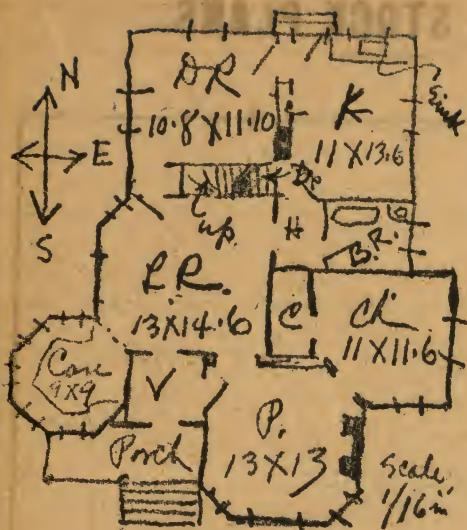 N
E
S
DR
10.8 X 11.10
K
11 X 13.6
Sink
up
Dn
H
B.R.
L.R.
13 X 14.6
C
Ch.
11 X 11.6
Con
9X9
V
Porch
P.
13 X 13
Scale
1/16 in